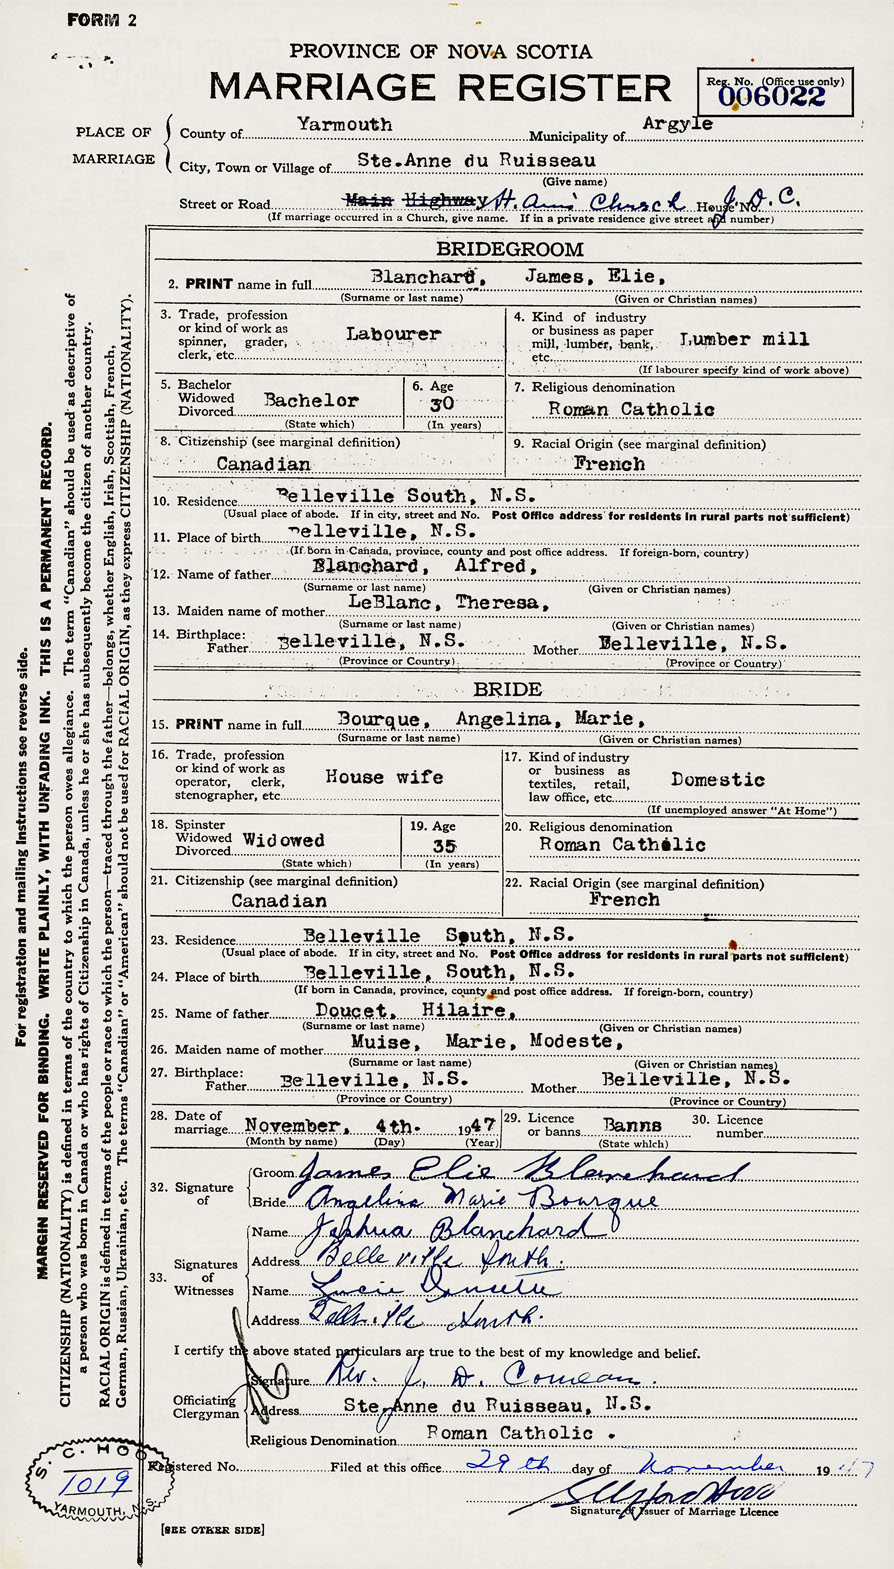 FORM 2
PROVINCE OF NOVA SCOTIA
MARRIAGE REGISTER
Reg. No. (Office use only)
006022
PLACE OF MARRIAGE
County of Yarmouth Municipality of Argyle
City, Town or Village of Ste.Anne du Ruisseau
(Give name)
Street or Road Main Highway St. Ann's Church House No. J. D. C.
(If marriage occurred in a Church, give name. If in a private residence give street and number)
BRIDEGROOM
2. PRINT name in full Blanchard, James, Elie,
(Surname or last name) (Given or Christian names)
3. Trade, profession or kind of work as spinner, grader, clerk, etc. Labourer
4. Kind of industry or business as paper mill, lumber, bank, etc. Lumber mill
(If labourer specify kind of work above)
5. Bachelor Widowed Divorced Bachelor
(State which)
6. Age 30
(In years)
7. Religious denomination
Roman Catholic
8. Citizenship (see marginal definition)
Canadian
9. Racial Origin (see marginal definition)
French
10. Residence Belleville South, N.S.
(Usual place of abode. If in city, street and No. Post Office address for residents in rural parts not sufficient)
11. Place of birth Belleville, N.S.
(If born in Canada, province, county and post office address. If foreign-born, country)
12. Name of father Blanchard, Alfred,
(Surname or last name) (Given or Christian names)
13. Maiden name of mother LeBlanc, Theresa,
(Surname or last name) (Given or Christian names)
14. Birthplace: Father Belleville, N.S. Mother Belleville, N.S.
(Province or Country) (Province or Country)
BRIDE
15. PRINT name in full Bourque, Angelina, Marie,
(Surname or last name) (Given or Christian names)
16. Trade, profession or kind of work as operator, clerk, stenographer, etc. House wife
17. Kind of industry or business as textiles, retail, law office, etc. Domestic
(If unemployed answer "At Home")
18. Spinster Widowed Divorced Widowed
(State which)
19. Age 35
(In years)
20. Religious denomination
Roman Catholic
21. Citizenship (see marginal definition)
Canadian
22. Racial Origin (see marginal definition)
French
23. Residence Belleville South, N.S.
(Usual place of abode. If in city, street and No. Post Office address for residents in rural parts not sufficient)
24. Place of birth Belleville, South, N.S.
(If born in Canada, province, county and post office address. If foreign-born, country)
25. Name of father Doucet, Hilaire,
(Surname or last name) (Given or Christian names)
26. Maiden name of mother Muise, Marie, Modeste,
(Surname or last name) (Given or Christian names)
27. Birthplace: Father Belleville, N.S. Mother Belleville, N.S.
(Province or Country) (Province or Country)
28. Date of marriage November, 4th. 1947
(Month by name) (Day) (Year)
29. Licence or banns Banns
(State which)
30. Licence number
32. Signature of
Groom James Elie Blanchard
Bride Angelina Marie Bourque
33. Signatures of Witnesses
Name Joshua Blanchard
Address Belleville South.
Name Lucie
Address Belleville South.
I certify the above stated particulars are true to the best of my knowledge and belief.
Officiating Clergyman
Signature Rev. J. D. Comeau.
Address Ste.Anne du Ruisseau, N.S.
Religious Denomination Roman Catholic .
Registered No. Filed at this office 29th day of November 1947
Signature of Issuer of Marriage Licence
S. C. H
1019
YARMOUTH, N.S.
[SEE OTHER SIDE]
For registration and mailing instructions see reverse side.
MARGIN RESERVED FOR BINDING. WRITE PLAINLY, WITH UNFADING INK. THIS IS A PERMANENT RECORD.
CITIZENSHIP (NATIONALITY) is defined in terms of the country to which the person owes allegiance. The term "Canadian" should be used as descriptive of
a person who was born in Canada or who has rights of Citizenship in Canada, unless he or she has subsequently become the citizen of another country.
RACIAL ORIGIN is defined in terms of the people or race to which the person—traced through the father—belongs, whether English, Irish, Scottish, French,
German, Russian, Ukrainian, etc. The terms "Canadian" or "American" should not be used for RACIAL ORIGIN, as they express CITIZENSHIP (NATIONALITY).